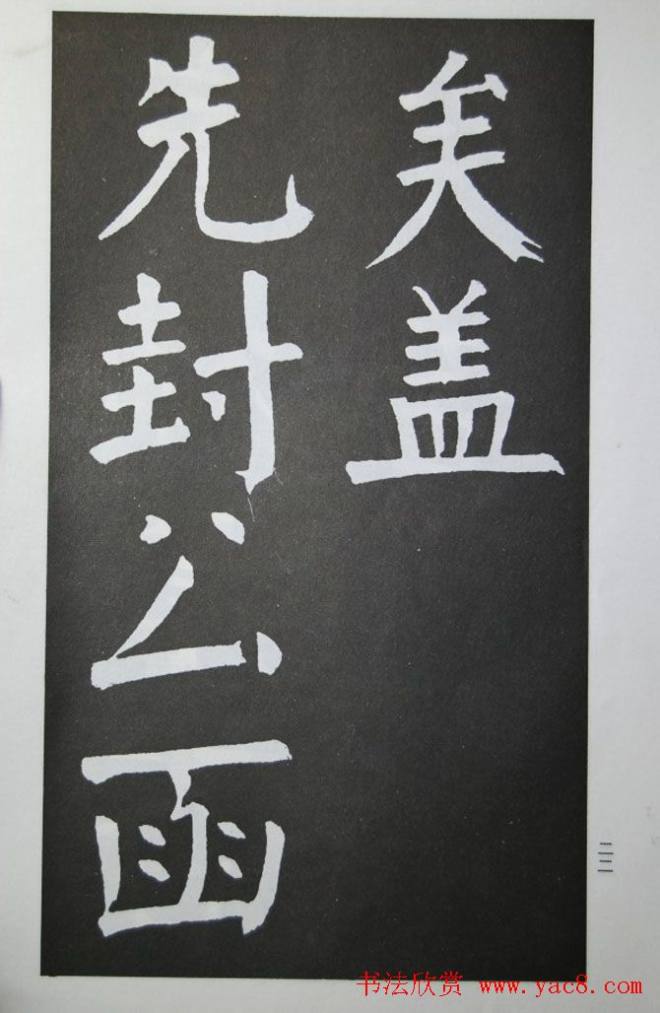 矣盖
先封公函
三三
书法欣赏 www.yac8.com